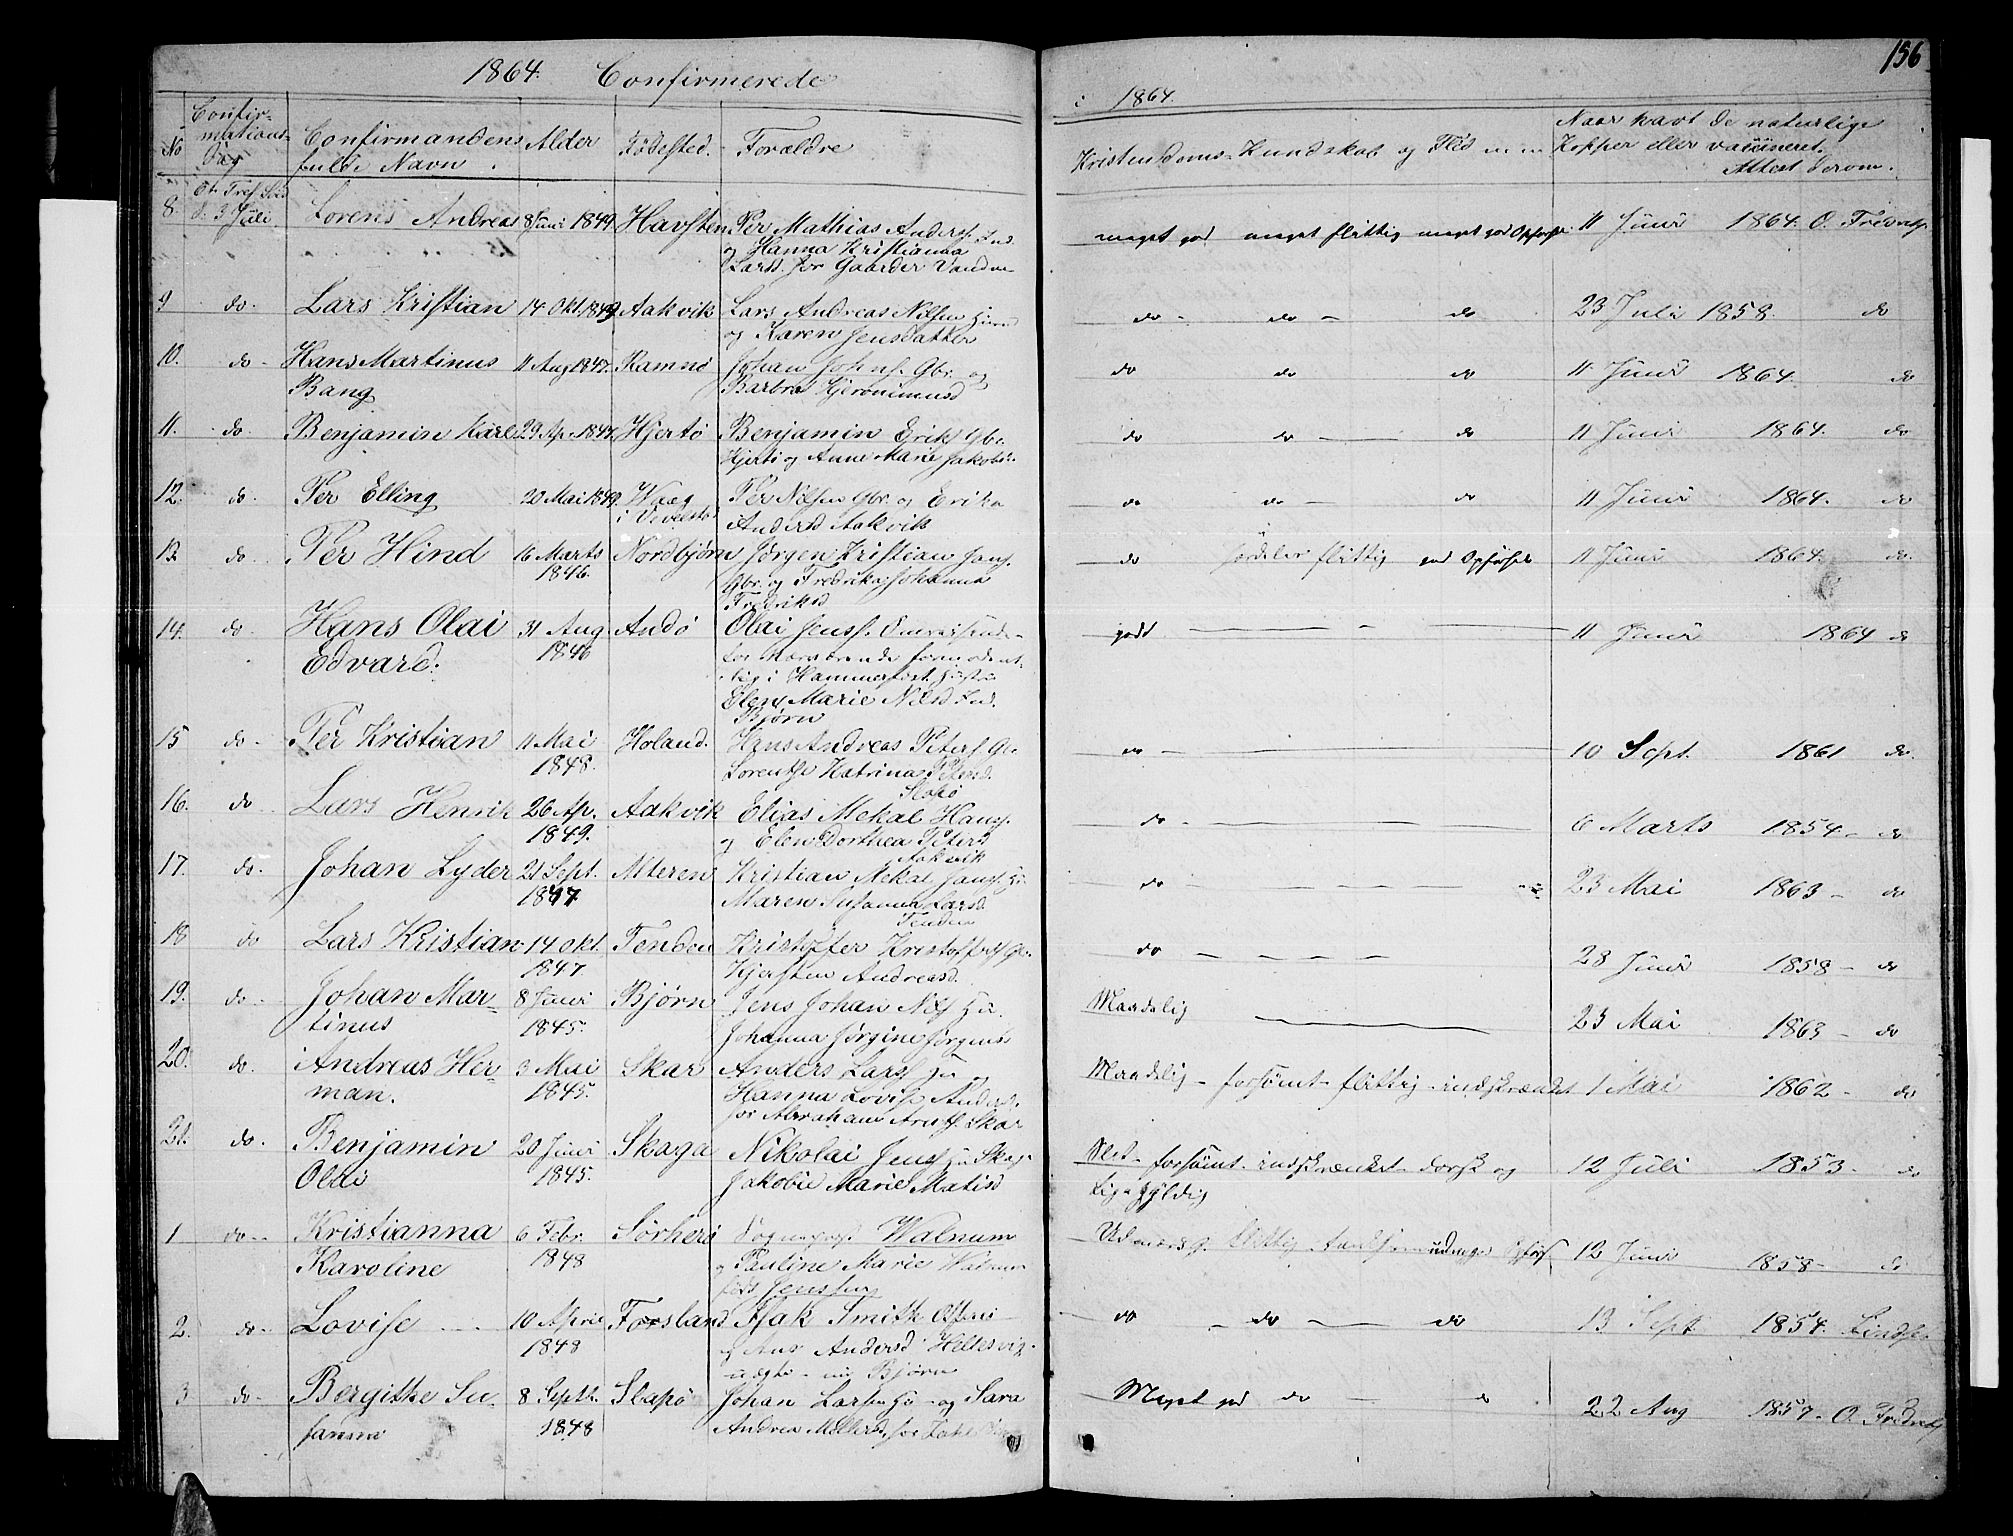 156
1864. Confirmerede
i 1864.
No Confir-
mations-
Dag
Confirmandens
fulde Navn.
Alder
Födested.
Forældre
Kristendoms-Kundskab og Flid
Naar havt de naturlige
Kopper eller vaccineret.
Attest derom.
8. d. 3 Juli Lorens Andreas 8 Juni 1849 Havsten Per Mathias Anders. Ind.
og Hanna Kristianna
Larsd. for Gaarder
meget god meget flittig meget god Opførsel 11 Juni 1864. O. Fredriks.
9 do. Lars Kristian 14 Okt. 1849 Aakvik Lars Andreas Nilsen
og Karen Jensdatter
do - do - do 23 Juli 1858. do
10. do - Hans Martinus 11 Aug 1847. Ramnö Johan Johns. Gbr. og
Bang Barbra Hjeronimusd
do do do 11 Juni 1864. do
11. do. Benjamin Karl 29 Ap. 1847. Hjertö Benjamin Erik Gbr.
Hjertö og Anne Marie Jakobs.
do do do 11 Juni 1864. do
12. do. Per Elling 20 Mai 1849. Waag Per Nilsen Gbr. og Erika
i Vevelstad Andersd Aakvik
do do - do 11 Juni 1864. do
13. do Per Hind 16 Marts Nordbjørn Jørgen Kristian Jans.
1846. Gbr. og Fredrika Johanna
Fredriksd
do særdeles flittig god Opførsel 11 Juni 1864. do.
14. do Hans Olai 31 Aug Andö Olai Jenss.
Edvard. 1846 for nærværende formodent-
lig i Hammerfest
Elen Marie Nilsd Ind.
Bjørn
godt 11 Juni 1864 do
15 do - Per Kristian 11 Mai Holand. Hans Andreas Peters. Gbr.
1848. Lorentse Katrina Petersd.
Slapö
do - 10 Sept. 1861 do.
16. do Lars Henrik 26 Ap. Aakvik Elias Mekal Hans.
1849. og Elen Dorthea Petersd
Aakvik
do - 6 Marts 1854 - do
17. do. Johan Lyder 21 Sept. Alteren Kristian Mekal Jans.
1847 Maren Susanna Larsd.
Tenden
do - 23 Mai 1863 - do
18 do Lars Kristian 14 Okt. Tenden Kristoffer Kristoffers. Gbr.
1847 Kjersten Andreasd.
do 28 Juni 1858 - do
19. do. Johan Mar- 8 Juni Bjørn Jens Johan Nils.
tinus 1845. Johanna Jørgine Jørgensd
Maadelig 23 Mai 1863 - do
20. do. Andreas Her- 3 Mai Skar Anders Lars. og
man. 1845. Hanna Lovise Andersd.
for Abraham Skar
Maadelig - forsömt - flittig - indskrænket 1 Mai 1862 - do
21. do. Benjamin 20 Juni Skaga Nikolai Jens. Skag.
Olai 1845. Jakobie Marie Matisd
Slet - forsömt - indskrænket - dorsk og 12 Juli 1853 - do
ligegyldig
1 do - Kristianna 6 Febr. Sörherö Sognepræst Walnum
Karoline 1848 og Pauline Marie Walnum
föds Jenssen
Udmærket g. flittig 12 Juni 1858 - do
2. do - Lovise 10 April Forsland Isak Smith
1848 og Ane Andersd Heltesvig
uægte - Bjørn
do - do - do 13 Sept 1854.
3 do - Bergitte Su- 8 Septb. Slapö Johan Larsen - og Sara
sanna 1848 Andrea
Meget god do - do 22 Aug 1857 - O. Fredriks.